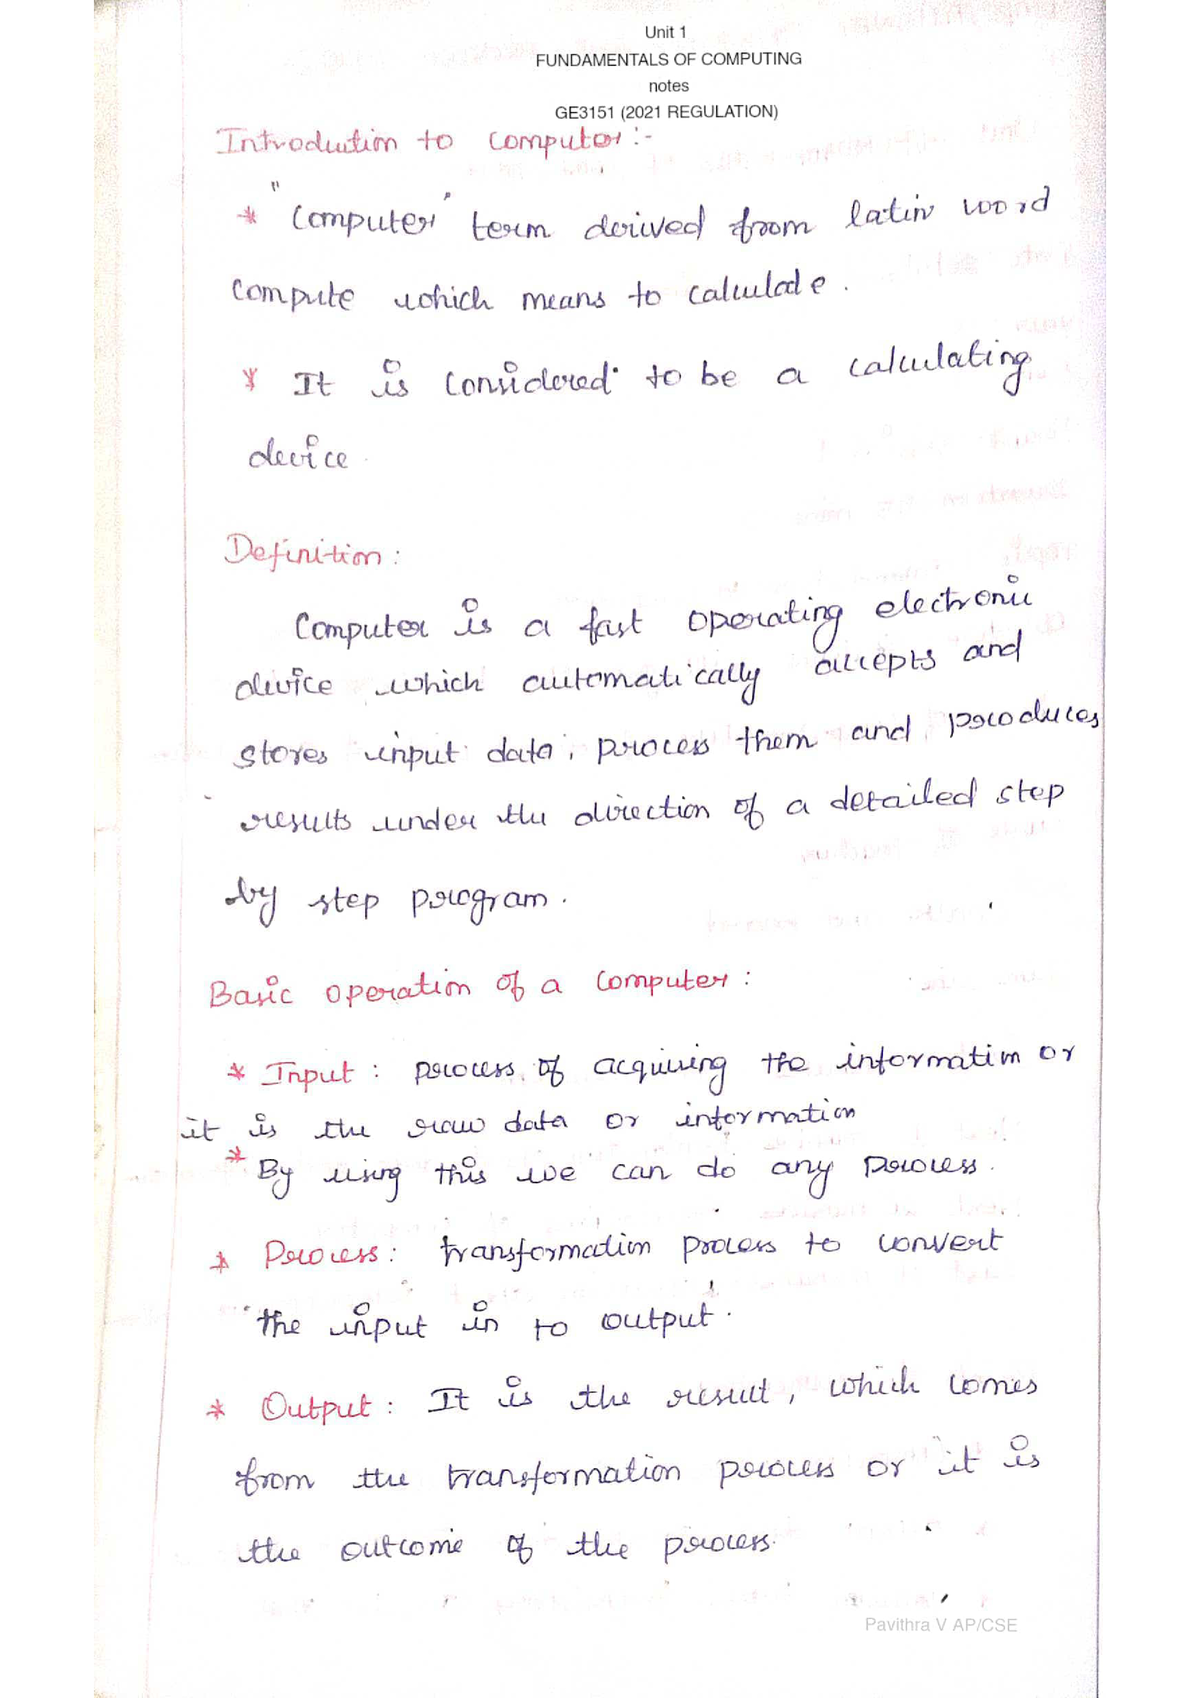 Unit 1
FUNDAMENTALS OF COMPUTING
notes
GE3151 (2021 REGULATION)
Introduction to computer :-
* "Computer" term derived from latin word
compute which means to calculate.
* It is considered to be a calculating
device.
Definition :
Computer is a fast operating electronic
device which automatically accepts and
stores input data, process them and produces
results under the direction of a detailed step
by step program.
Basic operation of a computer :
* Input : process of acquiring the information or
it is the raw data or information
* By using this we can do any process.
* Process : transformation process to convert
the input in to output.
* Output : It is the result, which comes
from the transformation process or it is
the outcome of the process.
Pavithra V AP/CSE